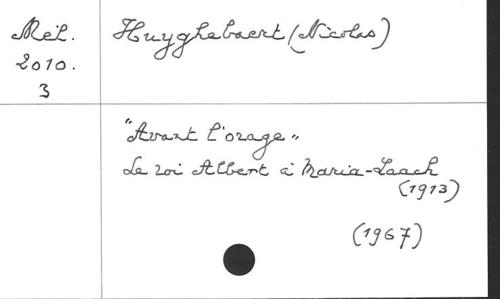 Mél.
2010.
3
Huyghebaert (Nicolas)
"Avant l'orage"
Le roi Albert à Maria-Laach
(1913)
(1967)